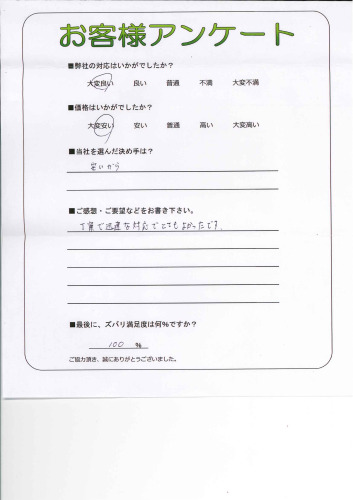 お客様アンケート
■弊社の対応はいかがでしたか？
大変良い 良い 普通 不満 大変不満
■価格はいかがでしたか？
大変安い 安い 普通 高い 大変高い
■当社を選んだ決め手は？
安いから
■ご感想・ご要望などをお書き下さい。
丁寧で迅速な対応でとてもよかったです。
■最後に、ズバリ満足度は何%ですか？
100 %
ご協力頂き、誠にありがとうございました。